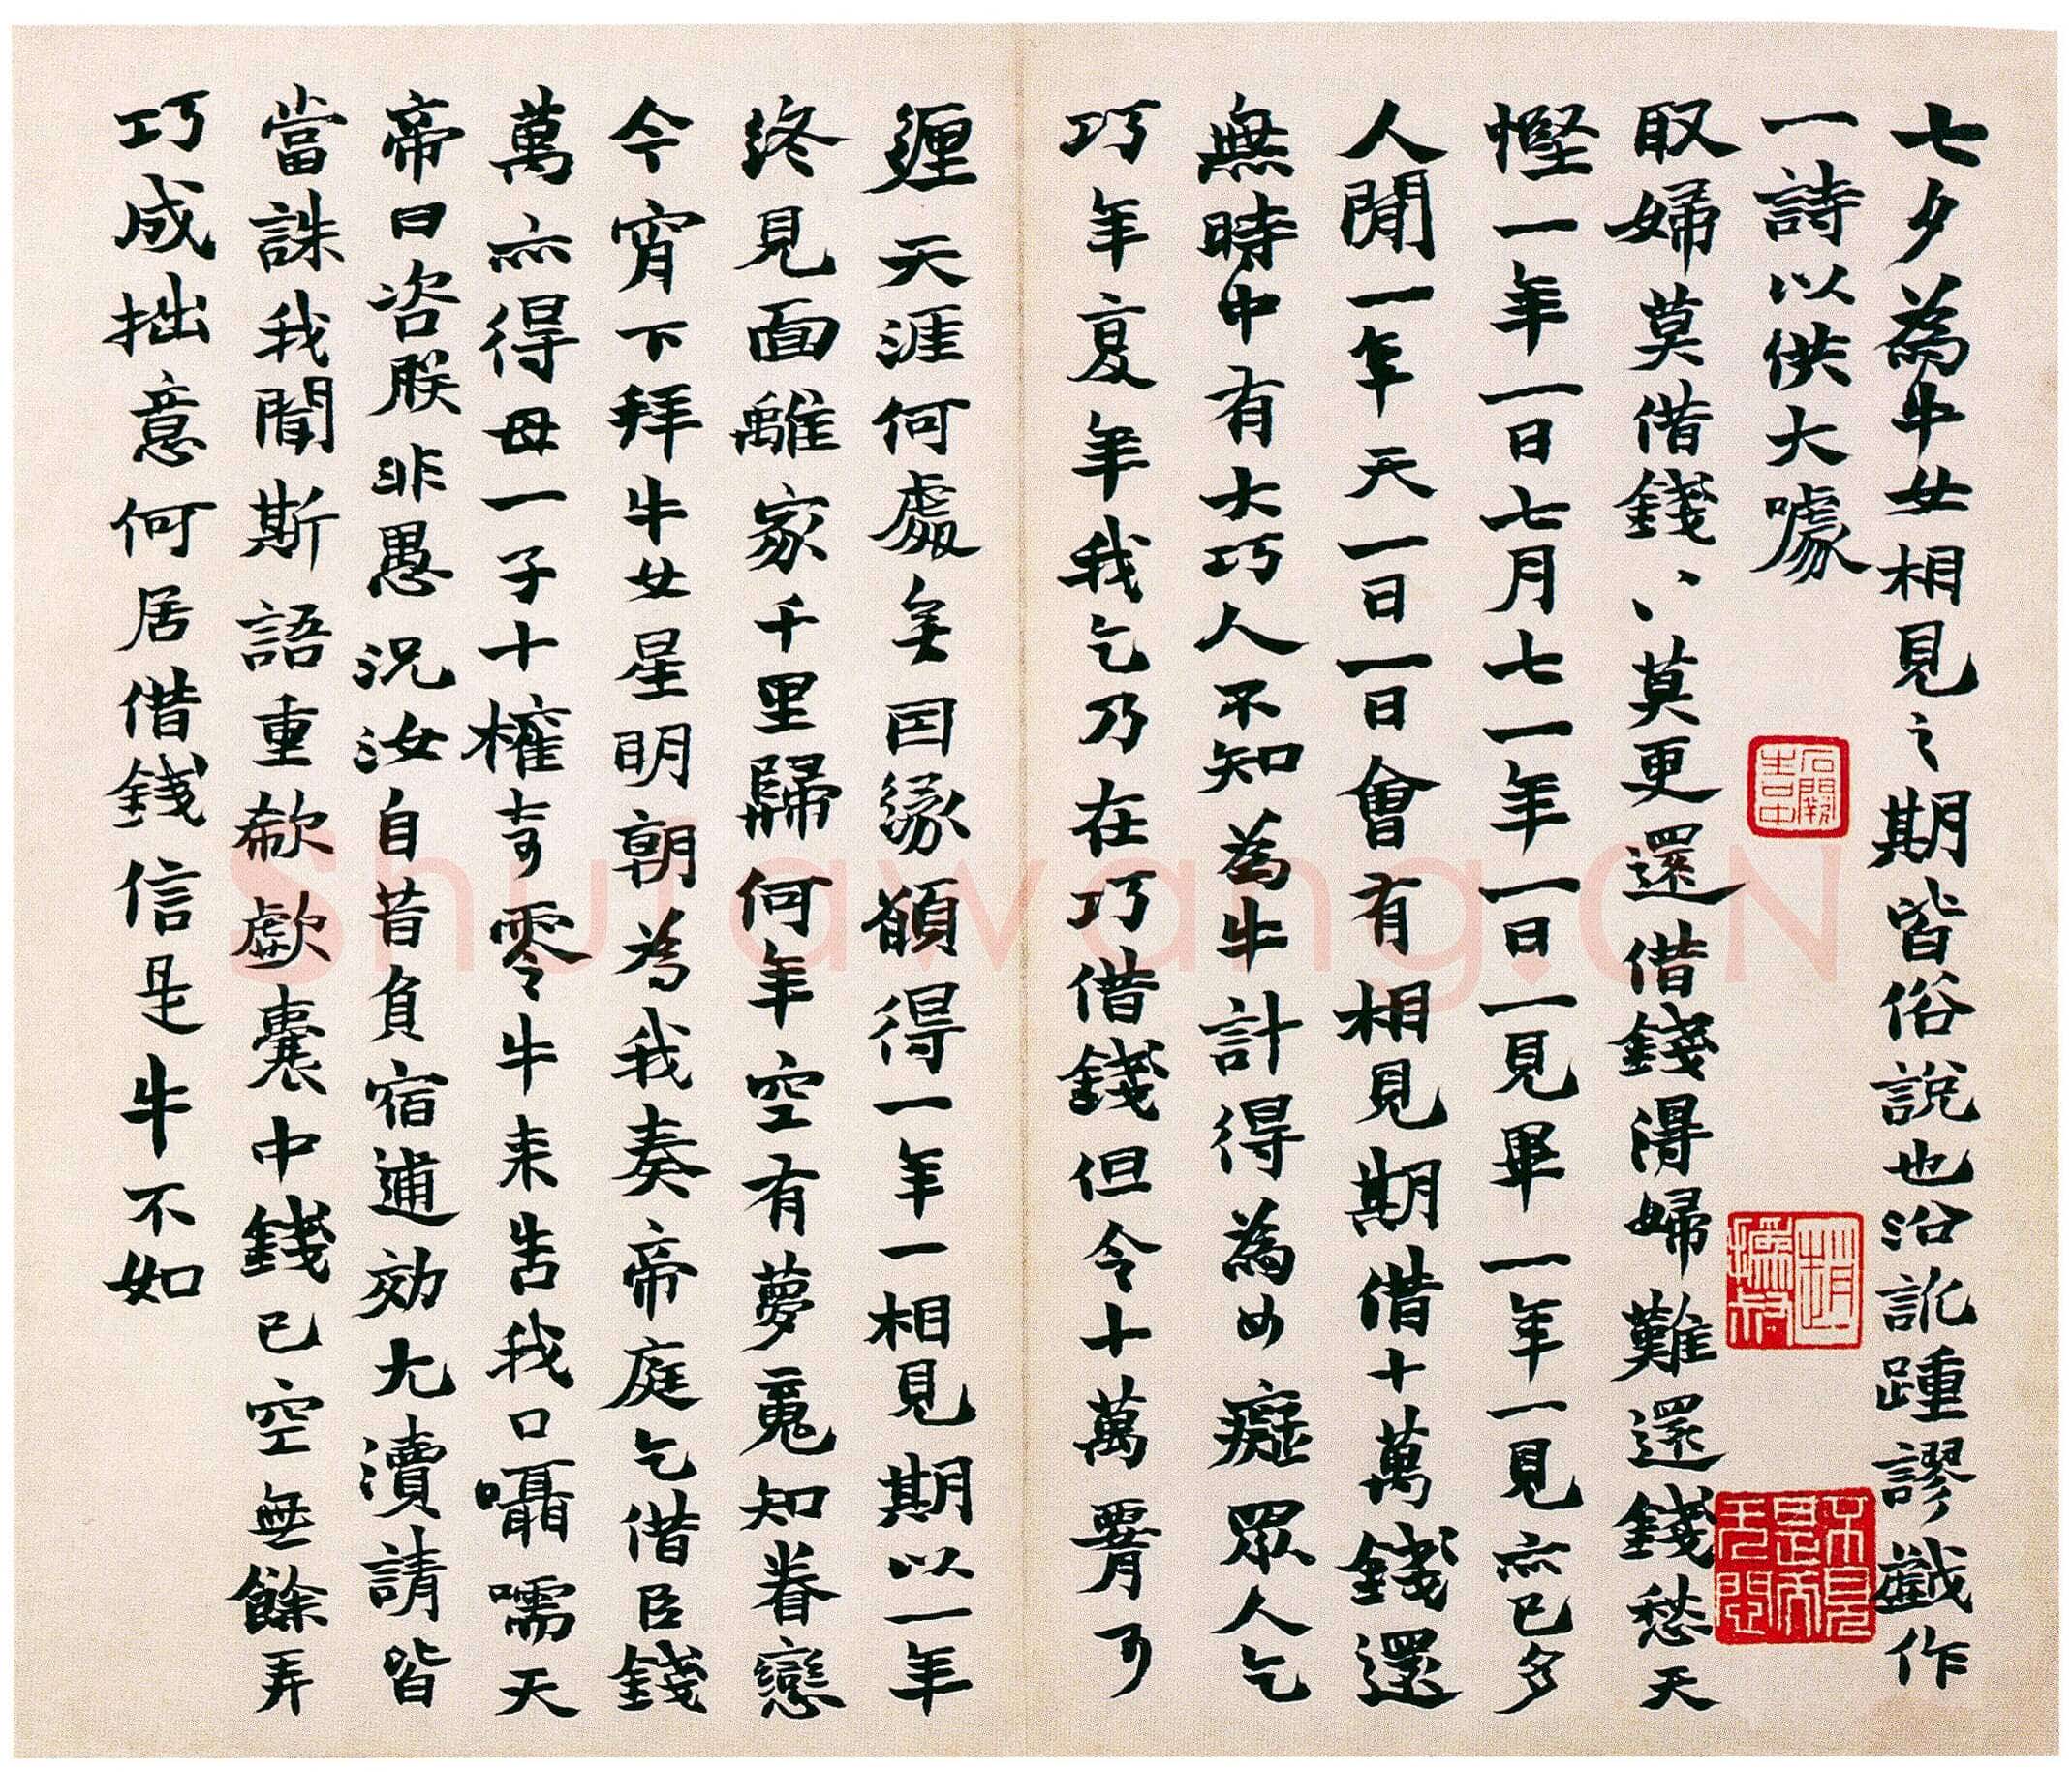 七夕為牛女相見之期皆俗說也沿訛踵謬戲作
一詩以供大噱
取婦莫借錢、、莫更還借錢得婦難還錢愁天
慳一年一日七月七一年一日一見畢一年一見亦已多
人間一年天一日一日會有相見期借十萬錢還
無時中有大巧人不知為牛計得為女癡眾人乞
巧年復年我乞乃在巧借錢但令十萬胥可
纏天涯何處無因緣願得一年一相見期以一年
終見面離家千里歸何年空有夢魂知眷戀
今宵下拜牛女星明朝為我奏帝庭乞借臣錢
萬亦得母一子十榷奇零牛來告我口囁嚅天
帝曰咨朕非愚況汝自昔負宿逋効尤瀆請皆
當誅我聞斯語重欷歔囊中錢已空無餘弄
巧成拙意何居借錢信是牛不如
趙撝叔
Shufawang.CN